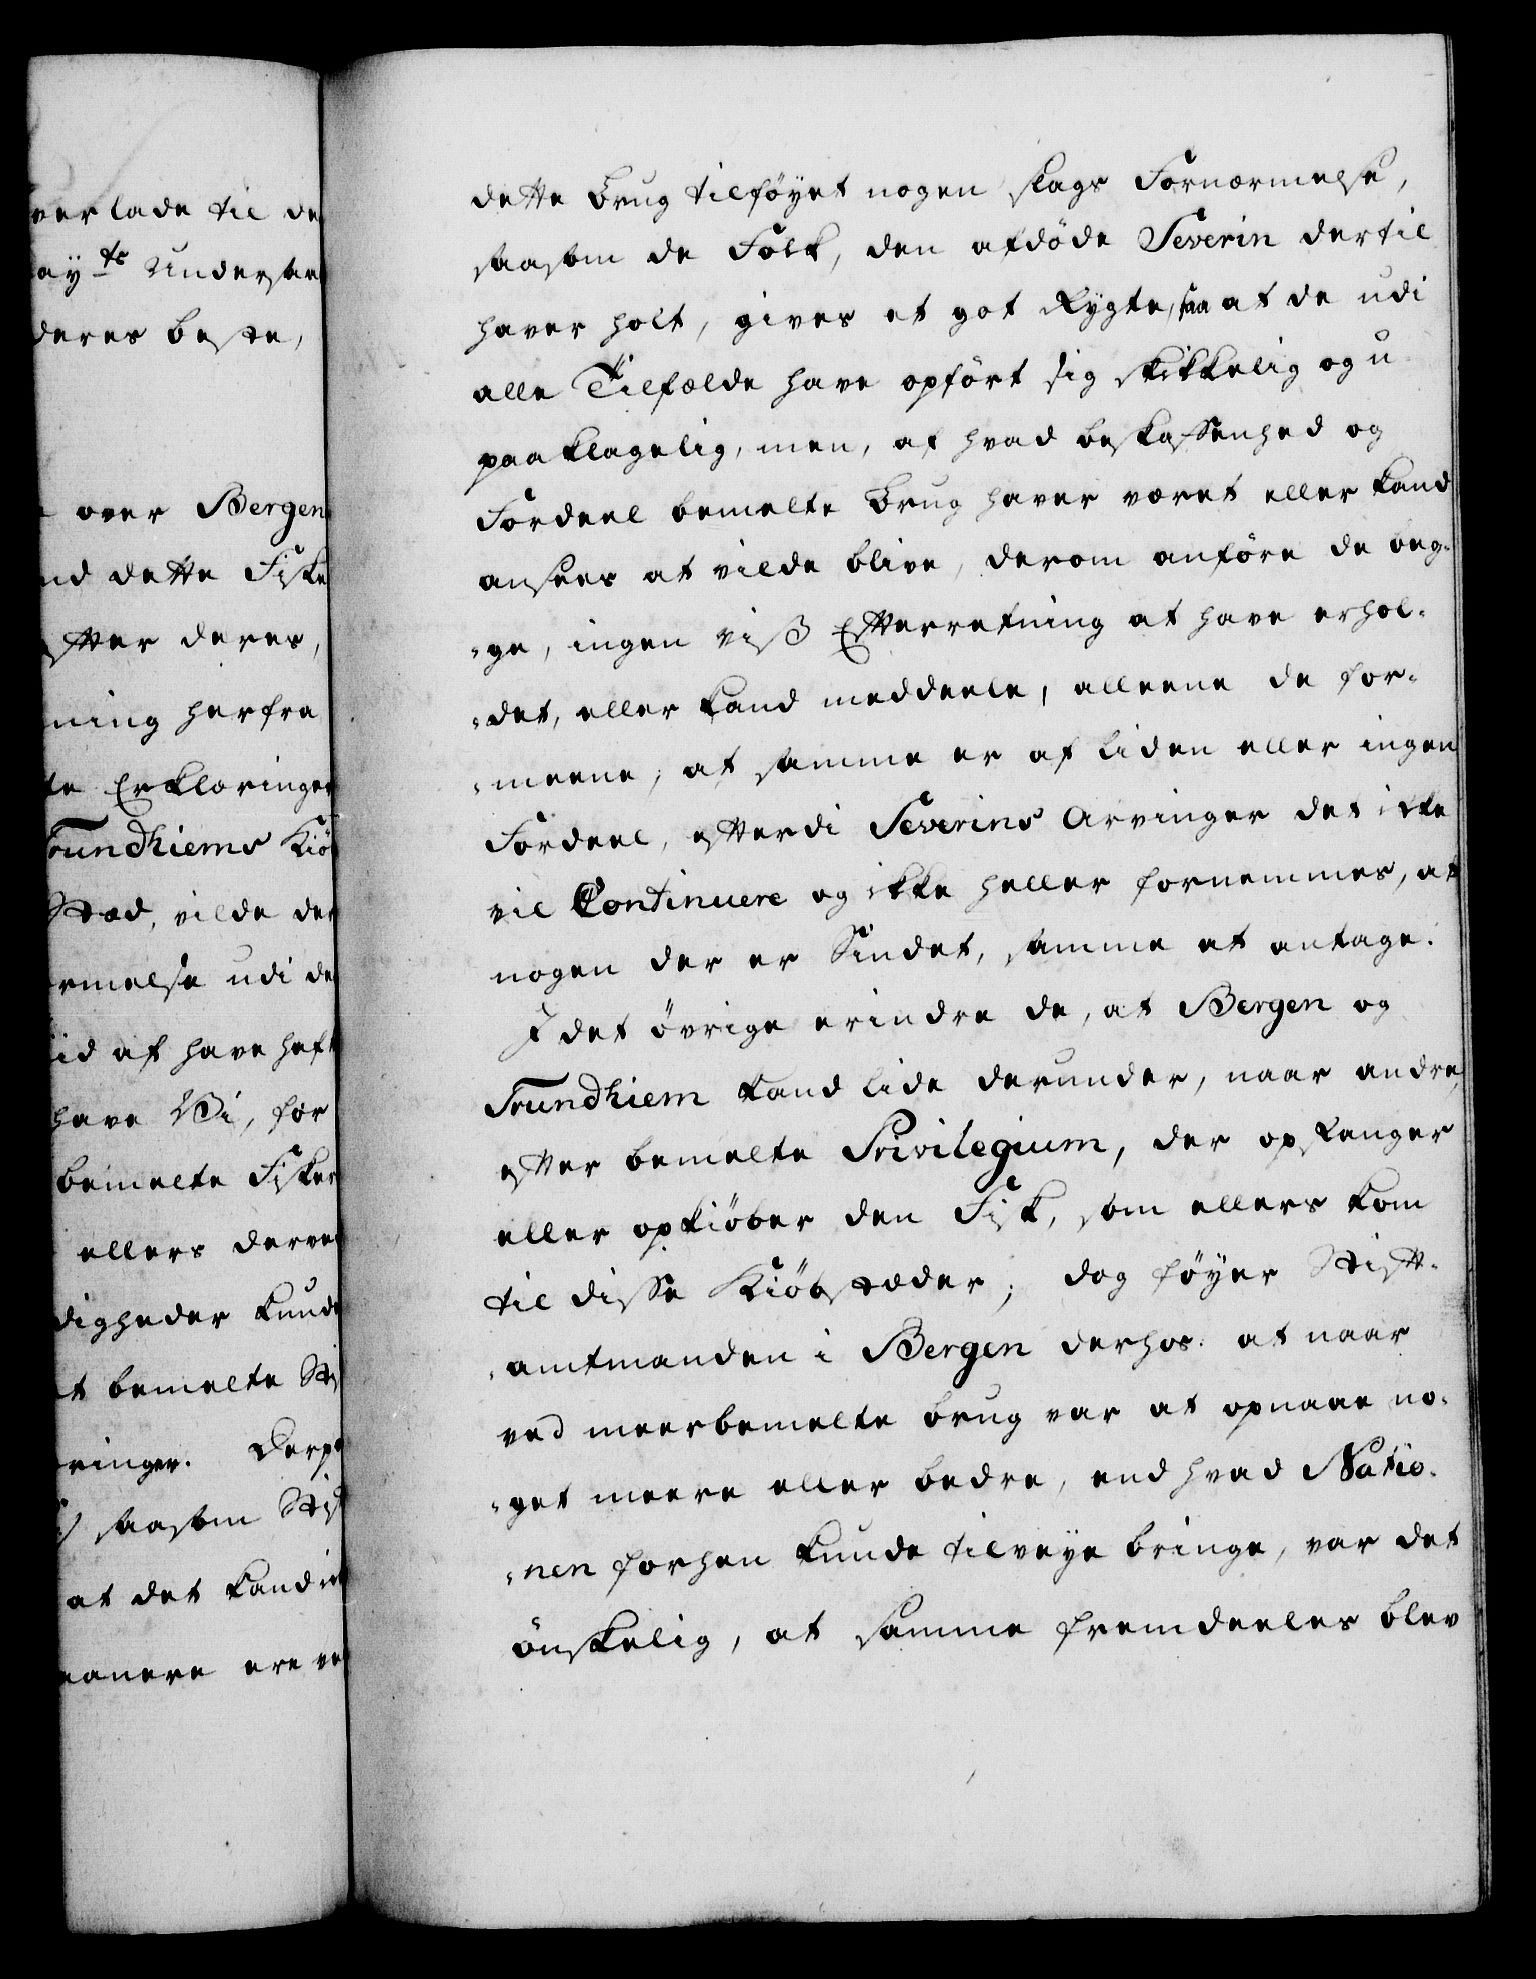 verlade til de
ayts Undersaa
deres beste,
over Bergen
nd dette Fiske
efter deres,
ning herfra
te Erklæringer
Trundhiems Kiö
Stæd, vilde der
ermelse udi de
tid at have haft
have Vi, for
bemelte Fisker
ellers derved
digheder kunde
at bemelte Sti
ringer. Derpaa
saasom Stif
at det kand ik
maanere ere ve
dette brug tilföyet nogen slags Fornærmelse,
saasom de Folk, den afdöde Severin dertil
haver holt, gives et got Rygte, saa at de udi
alle Tilfælde have opfört sig skikkelig og u
paaklagelig, men, af hvad beskaffenhed og
Fordeel bemelte brug haver været eller kand
ansees at vilde blive, derom anföre de beg-
-ge, ingen viß Efterretning at have erhol-
-det, eller kand meddeele, alleene de for-
-meene, at samme er af liden eller ingen
Fordeel, efterdi Severins Arvinger det ikke
vil Continuere og ikke heller fornemmes, at
nogen der er Sindet, samme at antage.
I det övrige erindre de, at Bergen og
Trundhiem kand lide derunder, naar andre,
efter bemelte Privilegium, der opfanger
eller opkiöber den Fisk, som ellers kom
til disse Kiöbstæder; dog föyer Stift-
-amtmanden i Bergen derhos: at naar
ved meerbemelte brug var at opnaae no-
-get meere eller bedre, end hvad Natio-
-nen forhen kunde tilveye bringe, var det
önskelig, at samme fremdeeles blev